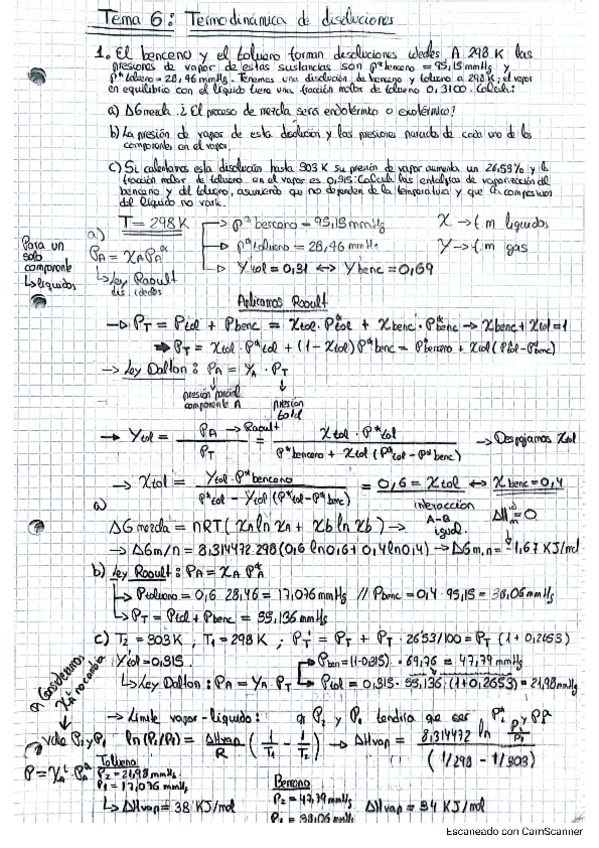 Tema 6: Termodinámica de disoluciones
1. El benceno y el tolueno forman disoluciones ideales. A 298 K las
presiones de vapor de estas sustancias son p*benceno = 95,15 mmHg y
p*tolueno = 28,46 mmHg. Tenemos una disolución de benceno y tolueno a 298 K; el vapor
en equilibrio con el líquido tiene una fracción molar de tolueno 0,3100. Calcula:
a) ΔG mezcla ¿El proceso de mezcla será endotérmico o exotérmico?
b) La presión de vapor de esta disolución y las presiones parciales de cada uno de los
componentes en el vapor.
c) Si calentamos esta disolución hasta 303 K su presión de vapor aumenta un 26,53% y la
fracción molar de tolueno en el vapor es 0,315. Calcula las entalpías de vaporización del
benceno y del tolueno, asumiendo que no dependen de la temperatura y que la composición
del líquido no varía.
T = 298 K → P*benceno = 95,15 mmHg X → f.m líquidos
→ P*tolueno = 28,46 mmHg Y → f.m gas
→ Ytol = 0,31 ↔ Ybenc = 0,69
a)
Para un
solo
componente
↳ líquidos
PA = XA PA*
↳ Ley Raoult
dis ideales
Aplicamos Raoult
→ PT = Ptol + Pbenc = Xtol · P*tol + Xbenc · P*benc → Xbenc + Xtol = 1
→ PT = Xtol · P*tol + (1 - Xtol) P*benc = P*benceno + Xtol (P*tol - P*benc)
→ Ley Dalton: PA = YA · PT
presión parcial
componente A
presión
total
→ Ytol = PA → Raoult / PT = Xtol · P*tol / P*benceno + Xtol (P*tol - P*benc) → Despejamos Xtol
→ Xtol = Ytol · P*benceno / P*tol - Ytol (P*tol - P*benc) = 0,6 = Xtol ↔ Xbenc = 0,4
a)
interacción
A-B
igual.
ΔHm = 0
ΔG mezcla = nRT (Xa ln Xa + Xb ln Xb) →
→ ΔGm/n = 8,314472 · 298 (0,6 ln 0,6 + 0,4 ln 0,4) → ΔGm,n = -1,67 KJ/mol
b) Ley Raoult: PA = XA PA*
↳ Ptolueno = 0,6 · 28,46 = 17,076 mmHg // Pbenc = 0,4 · 95,15 = 38,06 mmHg
↳ PT = Ptol + Pbenc = 55,136 mmHg
c) T2 = 303 K, T1 = 298 K; PT' = PT + PT · 26'53/100 = PT (1 + 0,2653)
Y'tol = 0,315. Pben = (1-0,315) · 69,76 = 47,79 mmHg
↳ Ley Dalton: PA = YA PT Ptol = 0,315 · 55,136 · (1+0,2653) = 21,98 mmHg
Consideramos
no cambia
→ Límite vapor-líquido: P2 y P1 tendría que ser P2* y P1*
vale P2 y P1 ln (P2/P1) = ΔHvap / R (1/T1 - 1/T2) → ΔHvap = 8,314472 ln P2/P1 / (1/298 - 1/303)
P = XA · PA*
Tolueno
P2 = 21,98 mmHg
P1 = 17,076 mmHg
↳ ΔHvap = 38 KJ/mol
Benceno
P2 = 47,79 mmHg ΔHvap = 34 KJ/mol
P1 = 38,06 mmHg
Escaneado con CamScanner